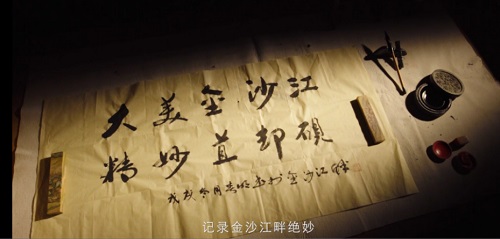 大美金沙江
精妙苴却硯
戊戌冬月 金沙江畔
记录金沙江畔绝妙